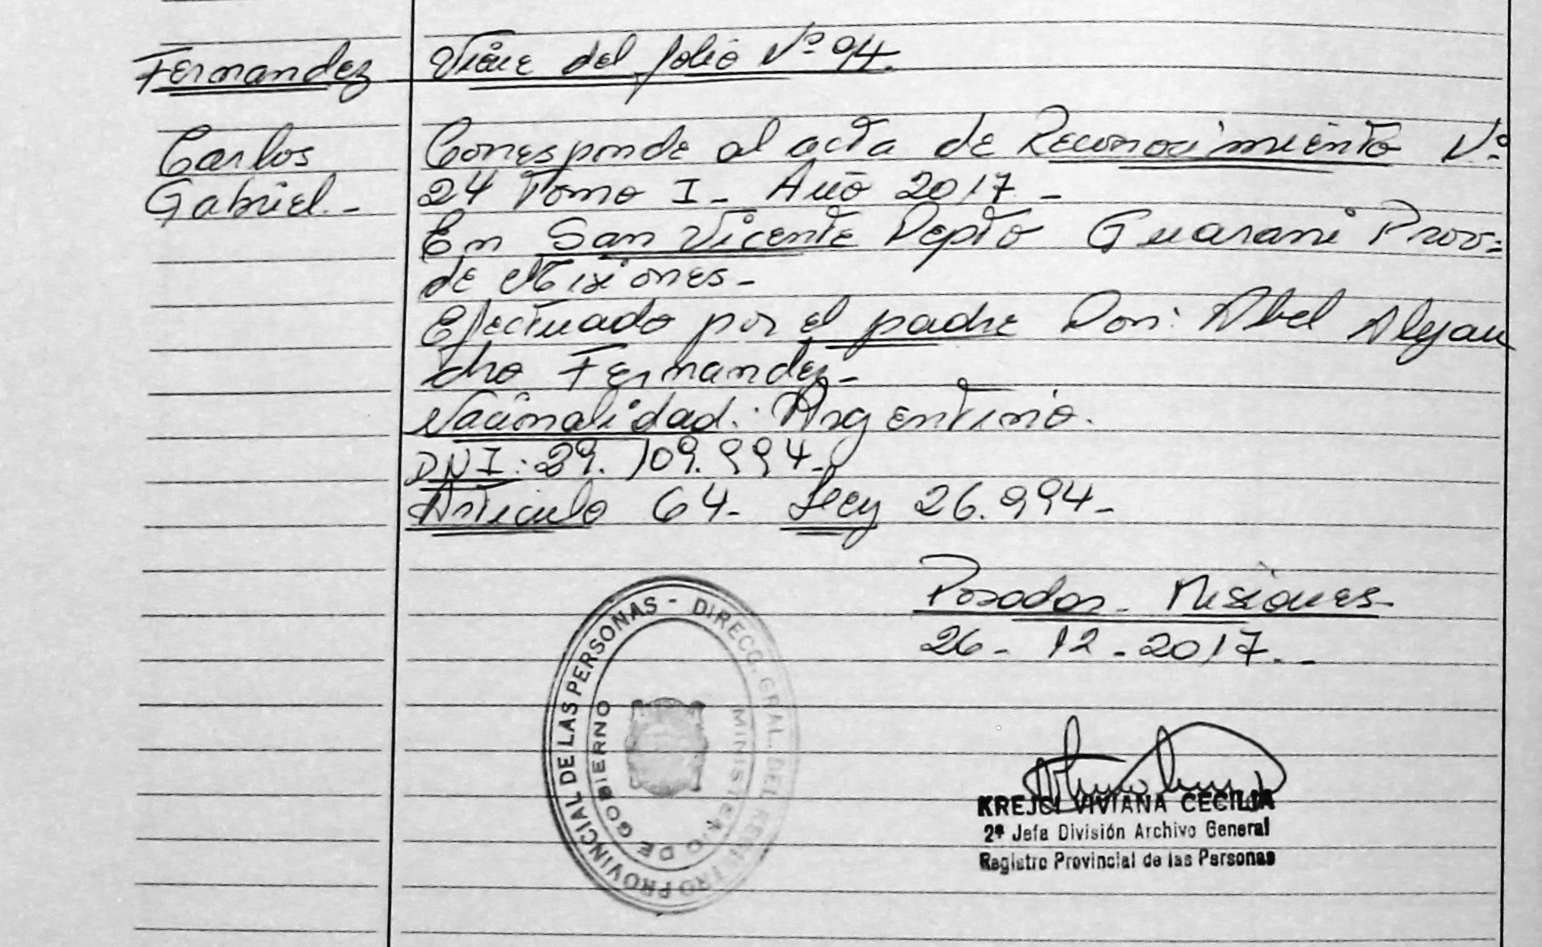 Fernandez
Carlos
Gabriel.-
Viene del folio Nº 94.
Corresponde al acta de Reconocimiento Nº
24 Tomo I- Año 2017.-
En San Vicente Depto Guarani Prov=
de Misiones.-
Efectuado por el padre Don: Abel Alejan
dro Fernandez-
Nacionalidad: Argentino.
DNI: 29.109.994-
Articulo 64- Ley 26.994-
Posadas- Misiones-
26-12-2017.-
DIRECC. GRAL. DEL REGISTRO PROVINCIAL DE LAS PERSONAS -
MINISTERIO DE GOBIERNO
KREJCI VIVIANA CECILIA
2ª Jefa División Archivo General
Registro Provincial de las Personas